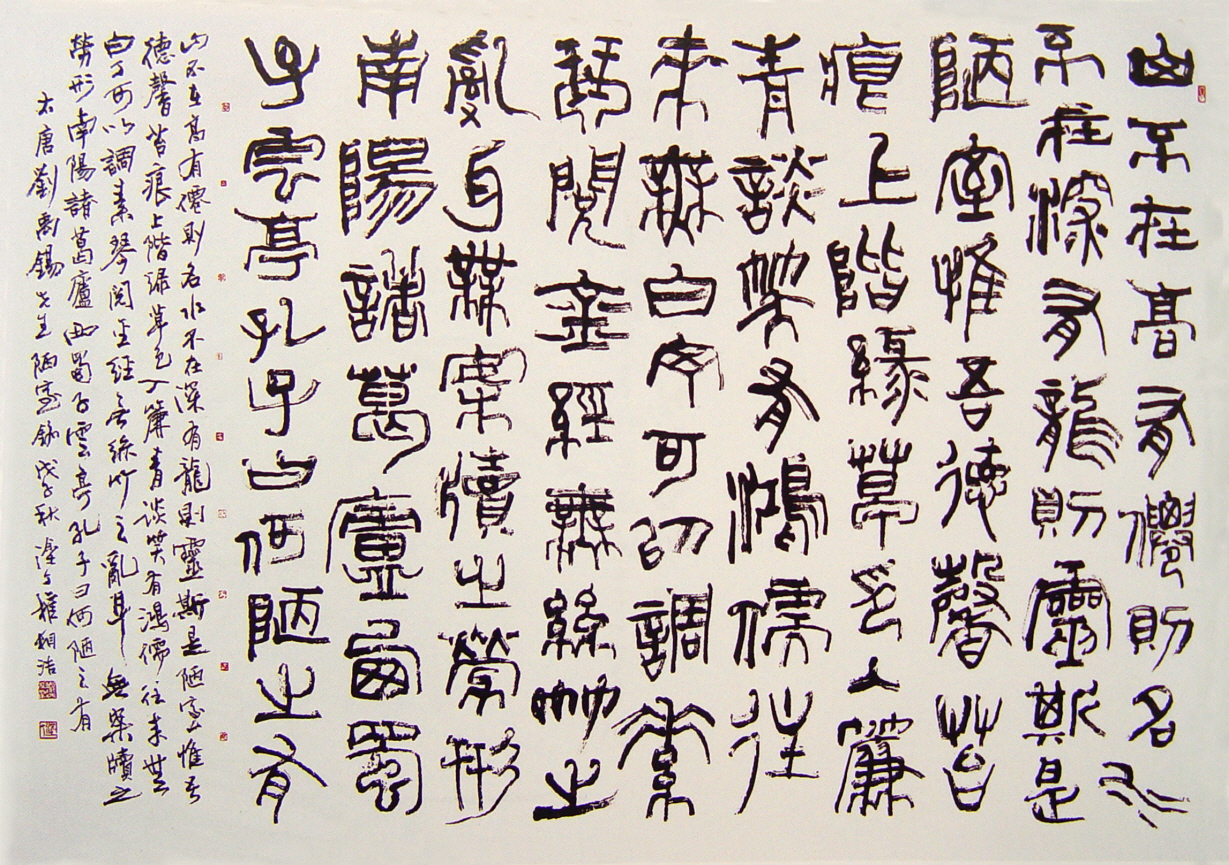 山不在高有僊則名水
不在深有龍則靈斯是
陋室惟吾德馨苔
痕上階綠草色入簾
青談笑有鴻儒往
来無白丁可以調素
琴閱金經無絲竹之
亂耳無案牘之勞形
南陽諸葛廬西蜀
子雲亭孔子曰何陋之有
山不在高有僊則名水不在深有龍則靈斯是陋室惟吾
德馨苔痕上階綠草色入簾青談笑有鴻儒往来無
白丁可以調素琴閱金經無絲竹之亂耳無案牘之
勞形南陽諸葛廬西蜀子雲亭孔子曰何陋之有
大唐劉禹錫先生陋室銘戊子秋塗丁權相浩